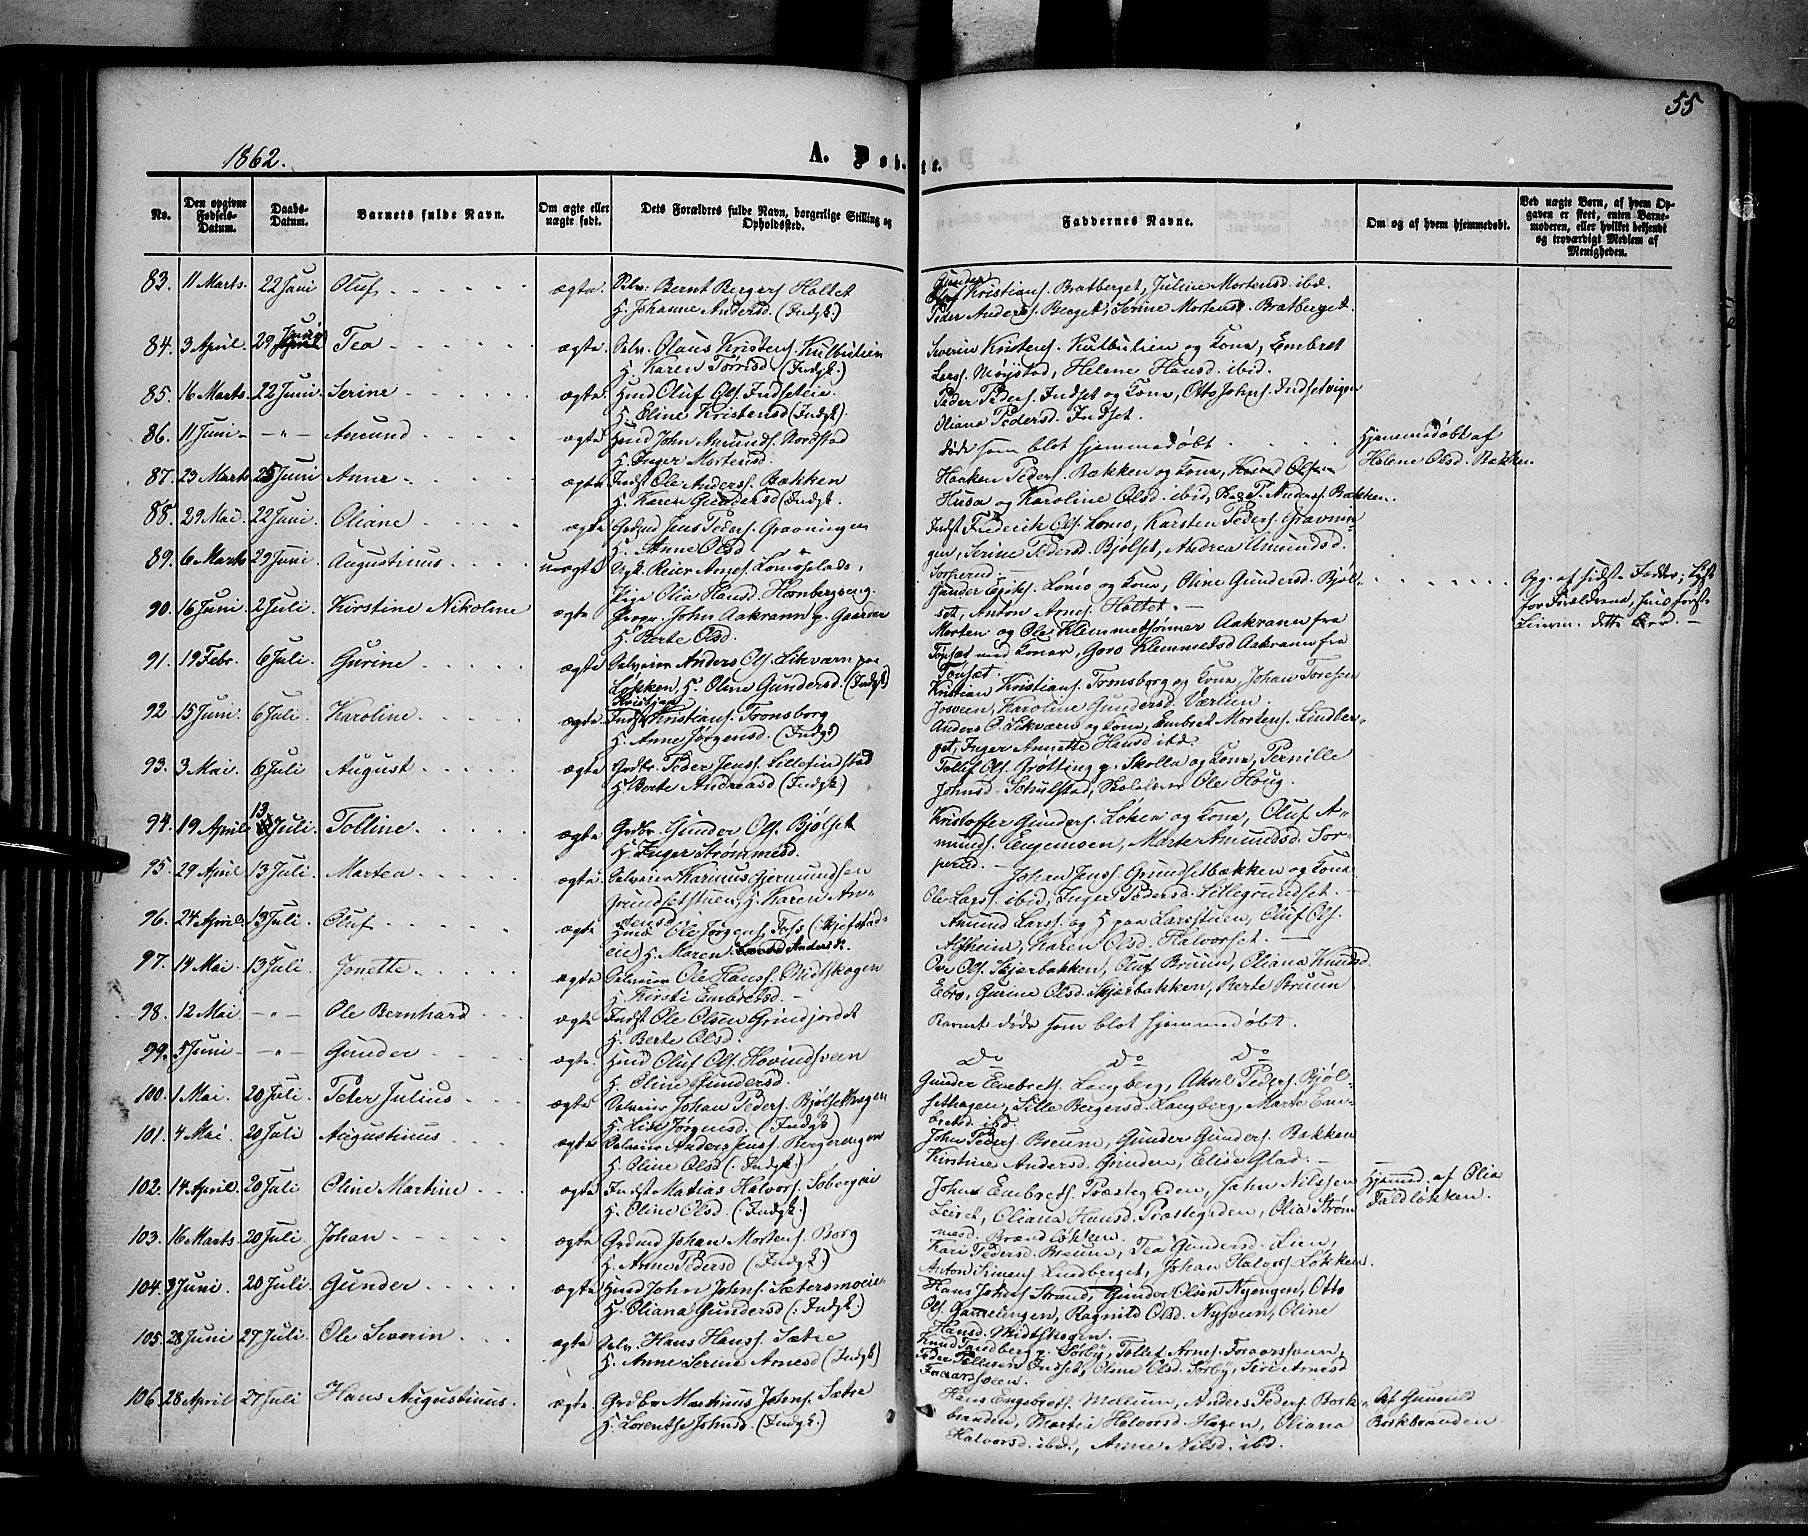 55
1862.
A. Døbte.
No.
Den opgivne Fødsels-Datum.
Daabs-Datum.
Barnets fulde Navn.
Om ægte eller uægte født.
Dets Forældres fulde Navn, borgerlige Stilling og Opholdssted.
Faddernes Navne.
Om og af hvem hjemmedøbt.
Ved uægte Børn, af hvem Opgaven er skeet, enten Barnemoderen, eller hvilket bekjendt og troværdigt Medlem af Menigheden.
83. 11 Marts 22 Juni Oluf ægte Selv. Bernt Bergers. Holtet
H. Johanne Andersd. (Indgk.)
Gunder Kristians. Bratberget, Juline Mortensd. ibd.
Peder Anders. Berget, Serine Mortensd. Bratberget.
84. 3 April. 29 Juni Tea ægte Selv. Olaus Kristens. Kulbulien
H. Karen Torrisd. (Indgk.)
Severin Kristens. Kulbulien og Kona, Embret
Larss. Møystad, Helene Hansd. ibid.
85. 16 Marts 22 Juni Serine ægte Huusd Oluf Ols. Indseteie
H. Eline Kristensd (Indgk.)
Peder Peders. Indset og Kona, Otto Johns. Indsetvigen
Oliana Pedersd. Indset.
86. 11 Juni - " - Amund ægte Huusd John Amunds. Nordstad
H. Inger Mortensd.
døde som blot hjemmedøbt
Hjemmedøbt af
Helene Olsd. Bakken
87. 23 Marts 25 Juni Anne ægte Indst Ole Anders. Bakken
H. Karen Gundersd (Indgk.
Haaken Peders. Bakken og Kona, Olsen
Husa og Karoline Olsd. ibid, P. Anders. Bakken.
88. 29 Mai. 22 Juni. Oliane ægte Grdmd Jens Peders. Gravningen
H. Anne Olsd
Indst Frederik Ols. Lomo, Karsten Peders. Gravnin-
gen, Serine Pedersd. Bjølset, Andrea Amundsd.
Sorperud. —
89. 6 Marts 29 Juni Augustinus uægte Ungk. Reier Arnes. Lomoplads.
Pige Olia Hansd. Hornbergseng.
Gunder Eriks. Lomo og Kona, Oline Gundersd. Bjøl-
set, Anton Arnes. Holtet. —
Opg. af sidste Fadder; Lyst
for Forælderne, hvis første
Leierm. dette
90. 16 Juni 2 Juli. Kirstine Nikoline ægte Propr. John Aakrann p. Gaarder
H. Berte Olsd.
Morten og Ole Klemmetsønner Aakrann fra
Tønset med Koner, Goro Klemmetsd Aakrann fra
Tønset.
91. 19 Febr. 6 Juli. Gurine ægte Selveier Anders Ols. Likværn paa
Løkken, H. Oline Gundersd. (Indgk)
Kristian Kristians. Tronsborg og Kona, Johan Toresen
Josveen, Karoline Gundersd. Værlien.
92 15 Juni 6 Juli Karoline ægte Indst Kristian Kristians. Tronsborg
H. Anne Jørgensd. (Indgk)
Anders O. Likværn og Kona, Embret Mortens. Lindber-
get, Inger Annette Hansd ibd.
93. 3 Mai. 6 Juli August ægte Grdbr. Peder Jens. Lillefundstad
H. Berte Andreasd (Indgk.)
Tollef Ols. Grøtting p. Skolla og Kona, Pernille
Johnsd. Schulstad, Skolelærer Ole Houg.
94. 19 April 13 Juli. Tolline ægte Grdbr. Gunder Ols. Bjølset
H. Inger Strømmesd.
Kristoffer Gunders. Løken og Kona, Oluf A-
munds. Engemoen, Marte Amundsd. Sor-
perud. —
95. 29 April 13 Juli. Martea ægte Selveier Karinus Gjermundsen
Grundsetstuen, H. Karen Ar-
nesd.
Johan Jens. Grundsetbækken og Kona
Ole Lars. ibid, Inger Pedersd. Lillegrundset. —
96. 24 April. 13 Juli. Oluf ægte Huusd Ole Jørgens. Foss (: Skjefstad-
eie) H. Maren Andersd.
Amund Larss. og H. paa Larsstuen, Oluf Ols.
Alfheim, Karen Olsd. Halvorset. —
97. 19 Mai 13 Juli. Jonette ægte Selveier Ole Hans. Midtskogen
H. Kirsti Embretsd. —
Ove Ols. Skjærbækken, Oluf Bruun, Oliana Knudsd.
Ebro, Gurine Olsd. Skjærbækken, Berte Bruun
98. 12 Mai - " - Ole Bernhard ægte Indst Ole Olsen Grindjordet
H. Berte Olsd.
Barnet døde som blot hjemmedøbt.
99. 5 Juni - " - Gunder ægte Huusd Oluf Ols. Hovindsveen
H. Oline Gundersd.
do do do
100. 1 Mai. 20 Juli. Peter Julius ægte Selveier Johan Peders. Bjølsethagen
H. Lise Jørgensd. (Indgk)
Gunder Embrets. Langberg, Aksel Peders. Bjøl-
sethagen, Sille Bergersd. Langberg, Marte Em-
bretsd. ibd.
101. 4 Mai. 20 Juli Augustinus ægte Selveier Anders Jens. Bergerengen
H. Oline Olsd (: Indgk.)
John Peders. Breum, Gunder Gunders. Bakken
Kirstine Andersd. Grinden, Elise Glad. —
102. 14 April. 20 Juli Oline Martine ægte Indst Matias Halvors. Sobergeie
H. Oline Olsd. (Indgk)
Johns Embrets. Præstegrden, John Nilssen
Leiret, Oliana Hansd. Præstegrden, Olia Strøm
mesd. Brændløkken.
Hjemmd. af Olia
Faldløkken.
103. 16 Marts 20 Juli. Johan ægte Grdmd Johan Mortens. Borg
H. Anne Pedersd (Indgk.)
Kari Pedersd. Breum, Tea Gundersd. Lien,
Anton Simens. Lindberget, Johan Halvors. Løkken.
104. 3 Juni. 20 Juli. Gunder ægte Huusd John Johns. Sætersmoeie
H. Oliana Gundersd (: Indgk.)
Hans Johns. Strand, Gunder Olsen Nyengen, Otto
Ols. Gammelengen, Ragnild Olsd. Nysveen, Oline
Hansd. Midtskogen.
105. 28 Juni 27 Juli. Ole Severin ægte Selv. Hans Hans. Sætre
H. Anne Serine Arnesd (Indgk)
Knud Sandberg p. Sørby, Tollef Arnes. Foraarsveen,
Peder Pellesen Indset, Oline Olsd. Sørby, Siri Arnesd
Foraarsveen.
106. 28 April 27 Juli Hans Augustinus. ægte Grdbr Martinus Johns. Sætre
H. Lorentse Johnsd. (Indgk.)
Hans Engebrets. Melum, Anders Peders. Bork-
branden, Martea Halvorsd. Hagen, Oliana
Halvorsd. ibd., Anne Nilsd. ibd.
Af Gunnild
Borkbranden